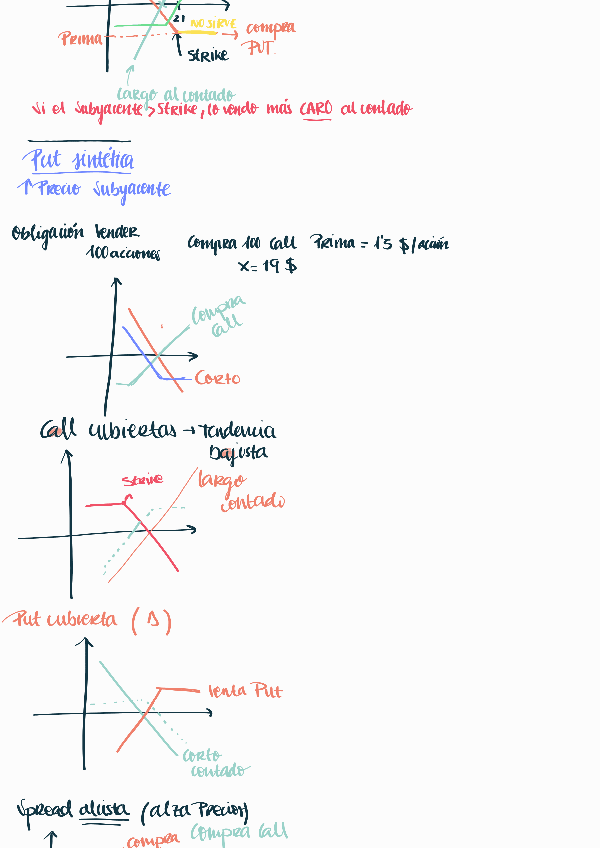 21 NO SIRVE compra
Prima PUT.
STRIKE
largo al contado
si el subyacente > STRIKE, lo vendo más CARO al contado
Put sintética
↑ Precio Subyacente
Obligación Vender
100 acciones
Compra 100 Call Prima = 1'5 $/acción
x = 19 $
Compra
Call
Corto
Call cubiertas → Tendencia
bajista
Strike
largo
contado
Put cubierta (Δ)
Venta Put
Corto
contado
Spread alcista (alza Precios)
compra Compra Call